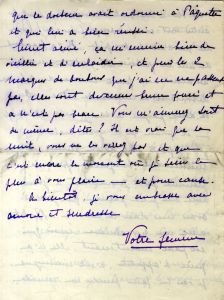 que le docteur avait ordonné à Paquette
et qui lui a bien réussi.
ça m'ennuie bien de
vieillir et d'enlaidir, et puis les 2
marques de boutons que j'ai ne me passent
pas, elles sont devenues brunes aussi et
ça n'est pas beau. Vous m'aimerez tout
de même, dites ? Il est vrai que la
nuit, vous ne les verrez pas et que
c'est encore le moment où je tiens le
plus à vous plaire — et pour cause.
A bientôt, je vous embrasse avec
amour et tendresse
Votre femme